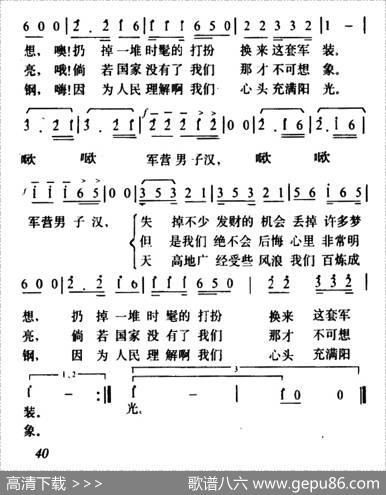 6 0 0 | 2. 2 i 6 | i i i i | 6 5 0 | 2 2 3 3 2 | i - |
想, 噢!扔 掉 一堆 时髦的 打扮 换来 这套军 装。
亮, 哦!倘 若 国家 没有了 我们 那才 不可想 象。
钢, 嗨!因 为 人民 理解啊 我们 心头 充满阳 光。
3. 2 i | 3. 2 i | 2 2 2 i 2 | 0 0 | 2. i 6 | 2. i 6 |
瞅 瞅 军营 男 子汉, 瞅 瞅
i i i 6 5 | 0 0 | 3 5 3 3 2 1 | 3 5 3 2 1 | 5 6 i 6 5 |
军营男 子 汉, 失 掉不少 发财的 机会 丢掉 许多梦
但 是我们 绝不会 后悔 心里 非常明
天 高地广 经受些 风浪 我们 百炼成
6 0 0 | 2. 2 i 6 | i i i i | 6 5 0 | 2 2 3 3 2 |
想, 扔 掉 一堆 时 髦的 打扮 换来 这套军
亮, 倘 若 国家 没 有了 我们 那才 不可想
钢, 因 为 人民 理 解啊 我们 心头 充满阳
1.2 3
i - :‖ i - | i - | i 0 0 ‖
装。 光。
象。
40
高清下载 >>> 歌谱八六 www.gepu86.com